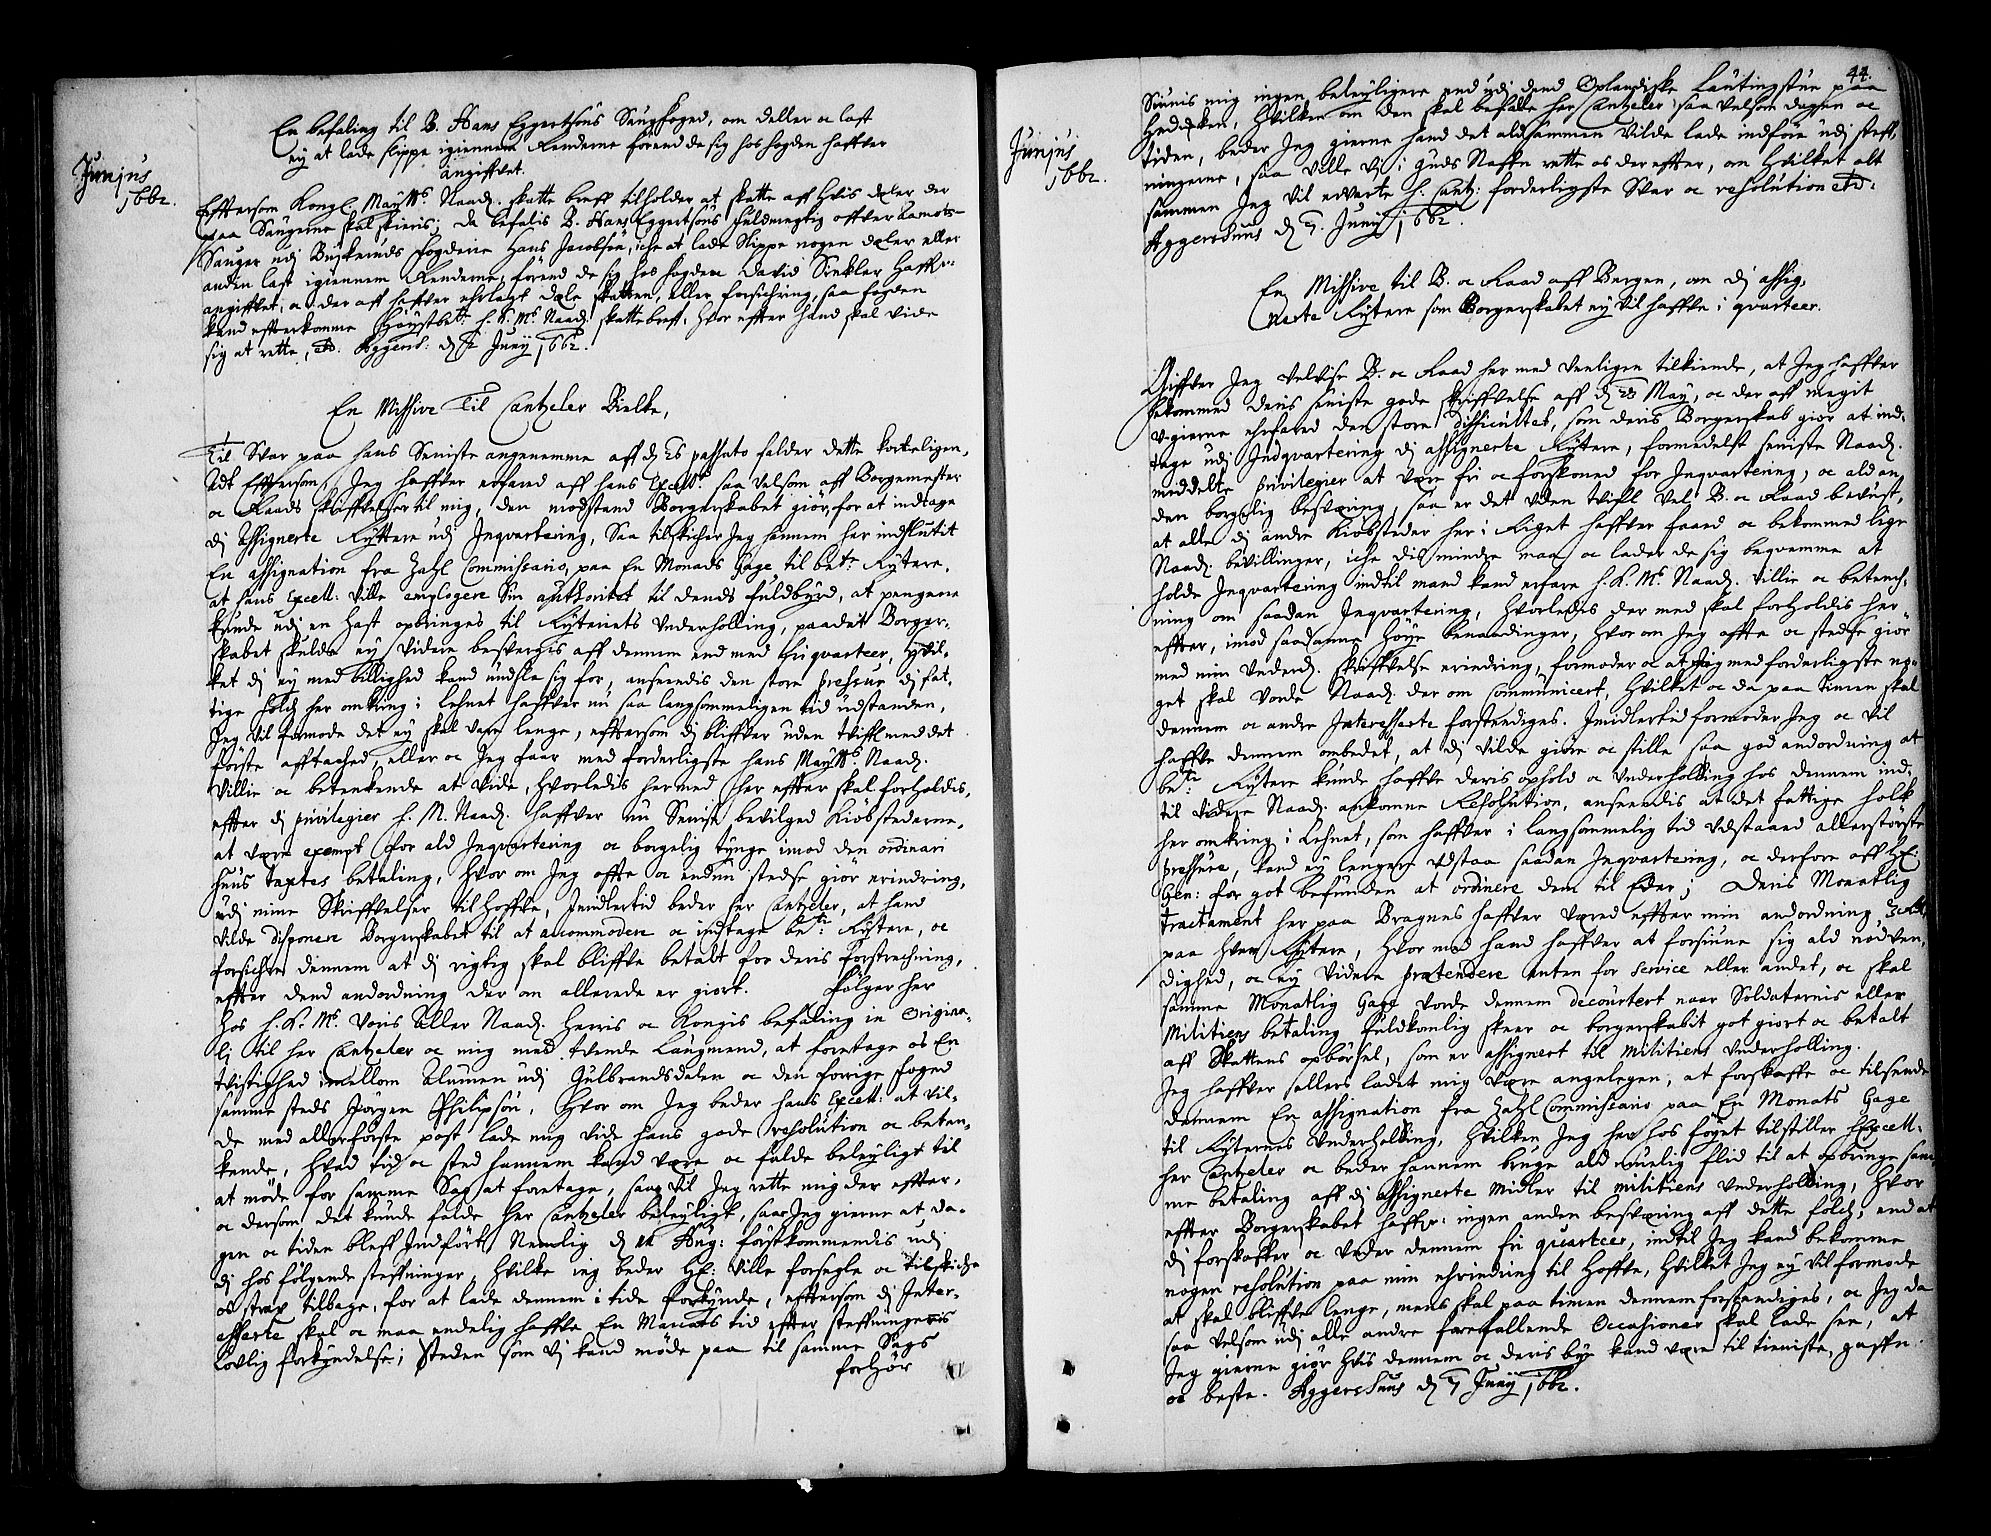 Junjus
1662.
En befaling til B. Hans Eggertsøns Saugfoged, om deller oc last
ey at lade slippe igiennem Renderne förend de sig hos fogden haffver
angiffvet.
Efftersom Kongl. Maytts. Naadj. skatte breff tilholder at skatte aff hvis deler der
paa Saugerne skal skieris; da befalis B. Hans Eggertsöns fuldmegtig offver
Sauger udj Buskeruds fogderie Hans Jacobsön, iche at lade Slippe nogen deler eller
anden last igiennem Renderne, förend de sig hos fogden David Sinkler haffver
angiffvet, oc der aff haffver erlagt dele skatten, eller forsichring, saa fogden
kand effterkomme höystbete. h. K. Ms. Naadj. skattebreff, hvor effter hand skal vide
sig at rette, etc. Aggersh: dj 2 Junij 1662.
En Missive Til Cantzeler Bielke,
Til Svar paa hans Seniste angenemme aff dj 26 passato falder dette korteligen,
At Efftersom, Jeg haffver erfared aff hans Excell: saa velsom aff Borgemester
oc Raads skriffvelser til mig, den modstand Borgerskabet giör, for at indtage
dj Assignerte Ryttere udj Inqvartering, Saa tilskicher Jeg hannem her indslutit
En assignation fra Zahl Commissario, paa En Monads Gage til bete. Rytere,
at hans Excell: ville employere Sin authoritet til dends fuldbyrd, at pengene
kunde udj en hast opbringes til Ryteriets Underholling, paa det Borger-
skabet skulde ey videre besvergis aff dennem end med friqvarteer, hvil-
ket dj ey med billighed kand undsla sig for, anseendis den store pressur dj fat-
tige folch her omkring i Lehnet haffver nu saa langsommeligen tid udstanden,
Jeg vil formode det ey skal vare lenge, efftersom dj bliffver uden tviffl med det
förste afftached, eller oc Jeg faar med forderligste hans Maytts. Naadj.
Villie oc betenkende at vide, hvorledis hermed her effter skal forholdis,
effter dj privilegier h. M. Naadj. haffver nu Senist bevilged Kiöbstederne,
at være exempt for ald Inqvartering oc borgelig tynge imod den ordinari
huus taxtes betaling, hvor om Jeg offte oc endnu stedse giör erindring,
udj mine Skriffvelser til hoffve, Imidlertid beder her Cantzeler, at hand
vilde disponere Borgerskabet til at accommodere oc indtage bete: Rytere, oc
forsichre dennem at dj rigtig skal bliffve betalt for deris forstrechning,
effter dend andordning der om allerede er giort. Fölger her
hos h. K. Ms. Voris Aller Naadj. Herris oc Kongis befaling in Origina-
li til her Cantzeler oc mig med tvende Laugmend, at foretage os En
tvistighed imellom Almuen udj Gulbrandsdalen oc den forrige foged
samme steds Jörgen Philipsön, Hvor om Jeg beder hans Excell: at vil-
de med allerförste post lade mig vide hans gode resolution oc beten-
kende, hvad tid oc sted hannem kand være oc falde beleyligt til
at möde for samme Sag at foretage, saa vil Jeg rette mig der effter,
oc dersom det kunde falde her Cantzeler beleyligt, saa Jeg gierne at da-
gen oc tiden bleff Indfört, Nemlig dj Aug: förstkommendis udj
dj hos fölgende steffninger, hvilke ieg beder H.E: ville forsegle oc tilskiche
os strax tilbage, for at lade dennem i tide forkynde, efftersom dj Inter-
esserte skal oc maa endelig haffve En Maanets tid effter steffningernis
Lovlig forkyndelse; Steden som vj kand möde paa til samme Sags
forhör
44.
Junjus
1662.
Siunis mig ingen beleyligere end udj dend Oplandiske Lautingstue paa
, hvilken om den skal befalle her Cantzeler saa velsom dagen oc
tiden, beder Jeg gierne hand det aldsammen vilde lade indföre udj steff-
ningerne, saa ville Vj i Guds Naffn rette os der effter, om hvilket alt
sammen Jeg vil erverte h. Cantz: forderligste Svar oc resolution etc:
Aggershuus dj 7. Junij 1662.
En Missive til B. oc Raad aff Bergen, om dj assig-
nerte Rytere som Borgerskabet ey vil haffve i qvarteer.
Giffver Jeg Velvise B. oc Raad her med venligen tilkiende, at Jeg haffver
bekommed deris seniste gode skriffvelse aff dj 28 May, oc der aff megit
ugierne erfared den store difficultet, som deris Borgerskab giör at ind-
tage udj Indqvartering dj assignerte Rytere, formedelst seniste Naadj.
meddelte privilegier at være fri oc forskoned for Inqvartering, oc ald an-
den borgelig besværing, saa er det uden tviffl Vel. B. oc Raad bevust,
at alle dj andre Kiöbsteder her i Riget haffver faaed oc bekommed lige
Naadj. bevillinger, iche dis mindre maa oc lader de sig beqvemme at
holde Inqvartering indtil mand kand erfare h. K. Ms. Naadj. Villie oc betench-
ning om saadan Inqvartering, hvorledis der med skal forholdis her-
effter, imod saadanne höye benaadinger, hvor om Jeg offte oc stedse giör
med min Underdj. skriffvelse erindring, formoder oc at Jeg med forderligste no-
get skal vorde Naadj. der om Communicert, hvilket oc da paa timen skal
dennem oc andre Interesserte forstendiges. Imidlertid formoder Jeg oc vil
haffve dennem ombedet, at dj vilde giöre oc stille saa god andordning at
bete: Rytere kunde haffve deris ophold oc Underholding hos dennem ind-
til videre Naadj. ankomne Resolution, anseendis at det fattige folk
her omkring i Lehnet, som haffver i langsommelig tid udstaaed allerstörste
pressure, kand ey lengere udstaa saadan Inqvartering, oc derfore aff H.E:
Gen: for got befunden at ordinere dem til Eder; Deris Monatlig
tractament her paa Bragnes haffver vered effter min andordning,
paa hver Rytere, hvor med hand haffver at forsiune sig ald nödven-
dighed, oc ey videre prætendere enten for Service eller andet, oc skal
samme Monatlig Gage vorde dennem decourtert naar Soldaternis eller
Militiens betaling fuldkomlig skeer oc borgerskabit got giort oc betalt
aff Skattens opbörsel, som er assignert til Militiens Underholling.
Jeg haffver ellers ladet mig være angelegen, at forskaffe oc tilsende
dennem En assignation fra Zahl Commissario paa En Monats Gage
til Ryternes Underholding, hvilken Jeg her hos föyet tilstiller h Excell:
her Cantzeler oc beder hannem bruge ald muelig flid til at opbringe sam-
me betaling aff dj assignerte midler til militiens Underholding, hvor
effter Borgerskabet haffver: ingen anden besværing aff dette folch, end at
dj forskaffer oc under dennem fri quarteer, indtil Jeg kand bekomme
nogen resolution paa min erindring til hoffve, hvilket Jeg ey vil formode
at skal bliffve lenge, mens skal paa timen dennem forstendiges, oc Jeg da
saa velsom udj alle andre forefallende Occasioner skal lade see, at
Jeg gierne giör hvis dennem oc deris bye kand være til tieniste, gaffn
oc beste. Aggershuus dj 7 Junij 1662.